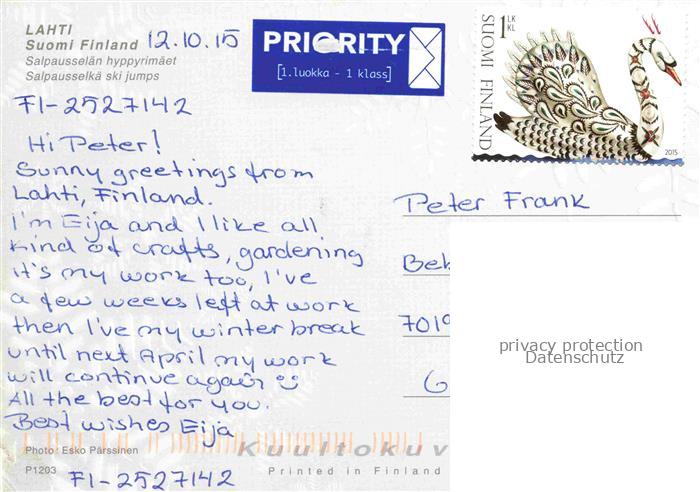 LAHTI
Suomi Finland
Salpausselän hyppyrimäet
Salpausselkä ski jumps
12.10.15
PRIORITY
[1.luokka - 1 klass]
1 LK
KL
SUOMI FINLAND
2015
FI-2527142
Hi Peter!
Sunny greetings from
Lahti, Finland.
I'm Eija and I like all
kind of crafts, gardening
it's my work too, I've
a few weeks left at work
then I've my winter break
until next April my work
will continue again ☺
All the best for you.
Best wishes Eija
Peter Frank
Bek
7019
G
privacy protection
Datenschutz
Photo: Esko Pärssinen
Kuultokuv
P1203
Printed in Finland
FI-2527142